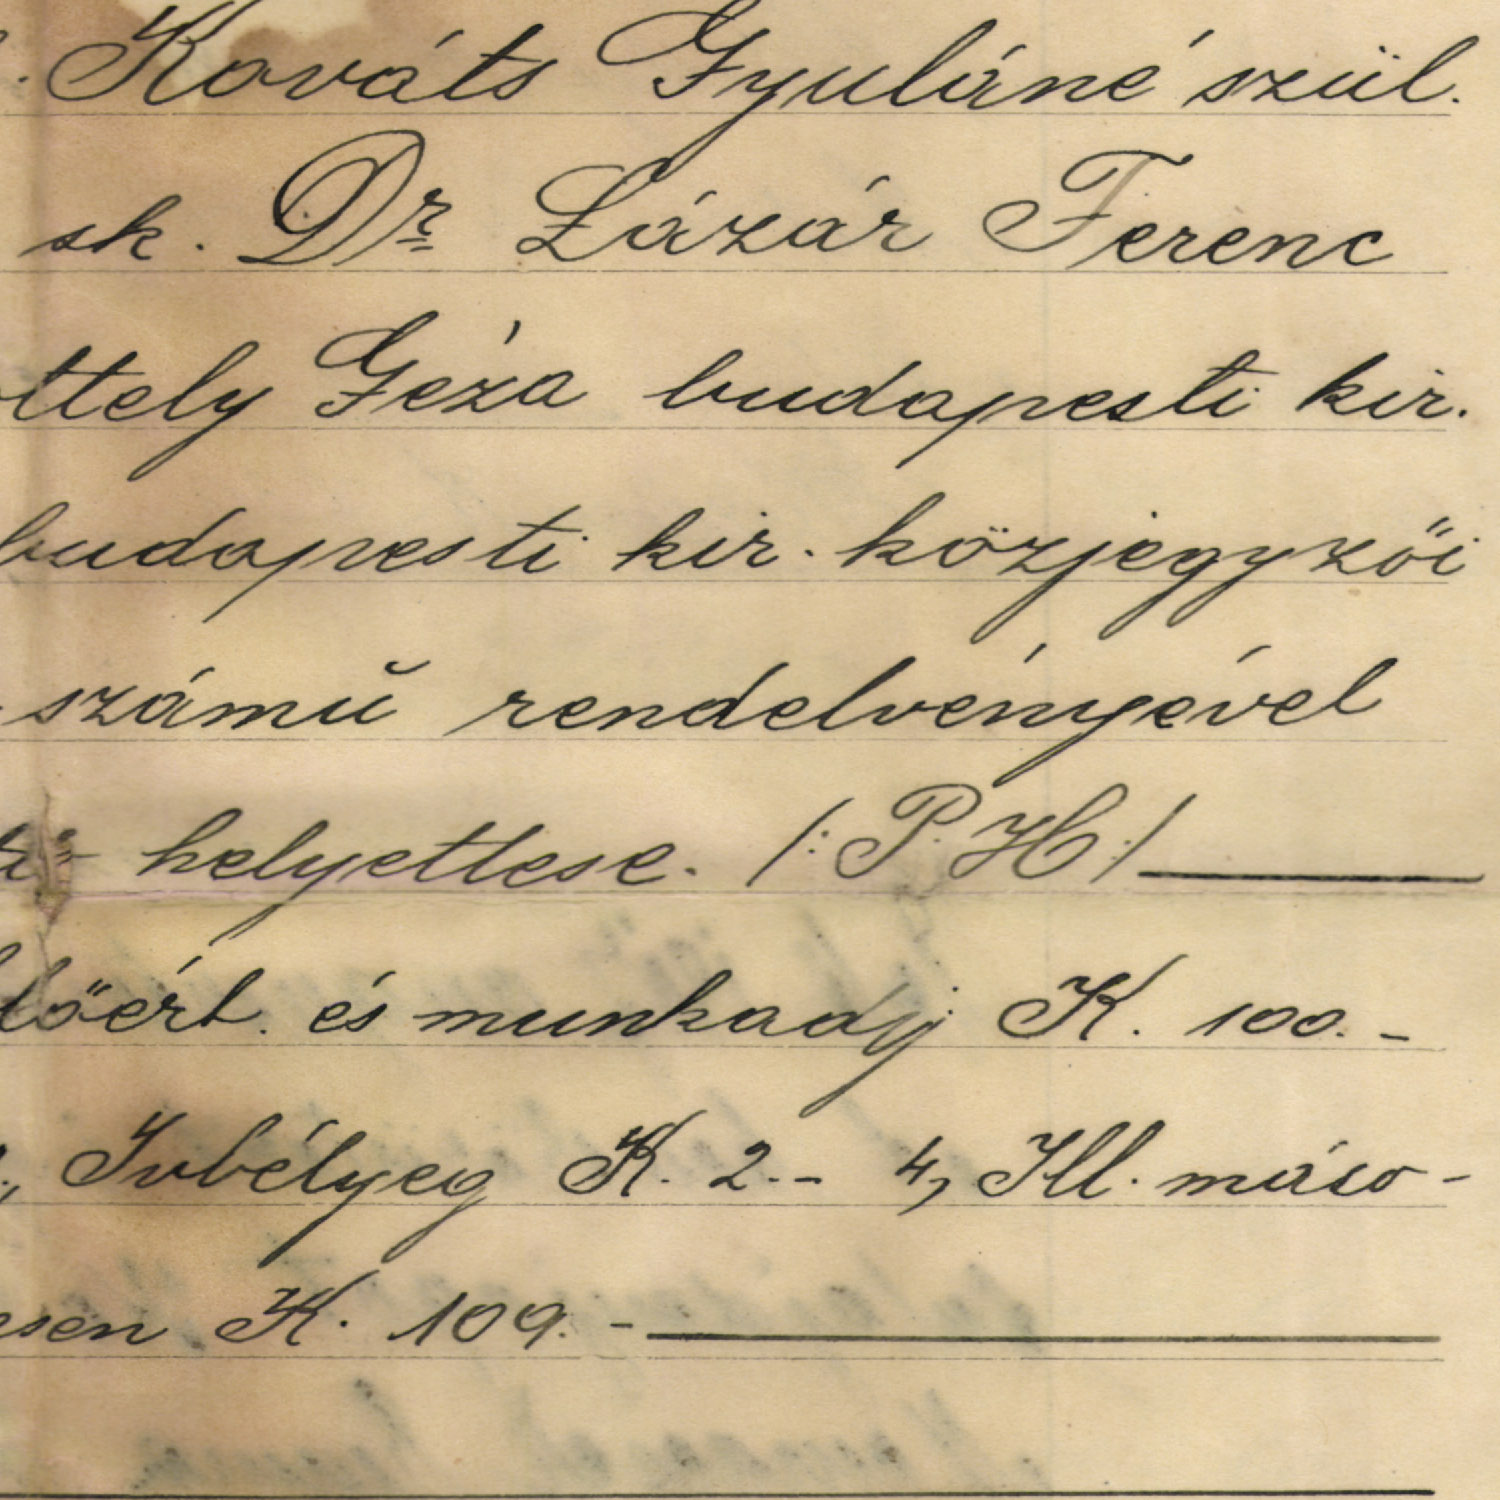 . Kováts Gyuláné szül.
sk. Dr. Lázár Ferenc
ttely Géza budapesti kir.
budapesti kir. közjegyzői
számŭ rendelvényével
helyettese. /: P. H :/
lőért. és munkadij K. 100.-
Ivbélyeg K. 2.-- 4, Ill. máso-
esen K. 109.-